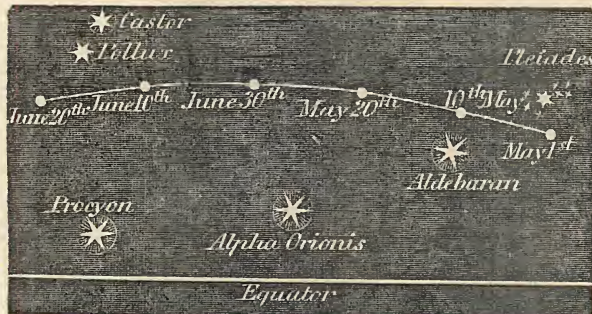 Castor
Pollux
Pleiades
June 20th June 10th June 30th May 20th 10th May
May 1st
Aldebaran
Procyon
Alpha Orionis
Equator